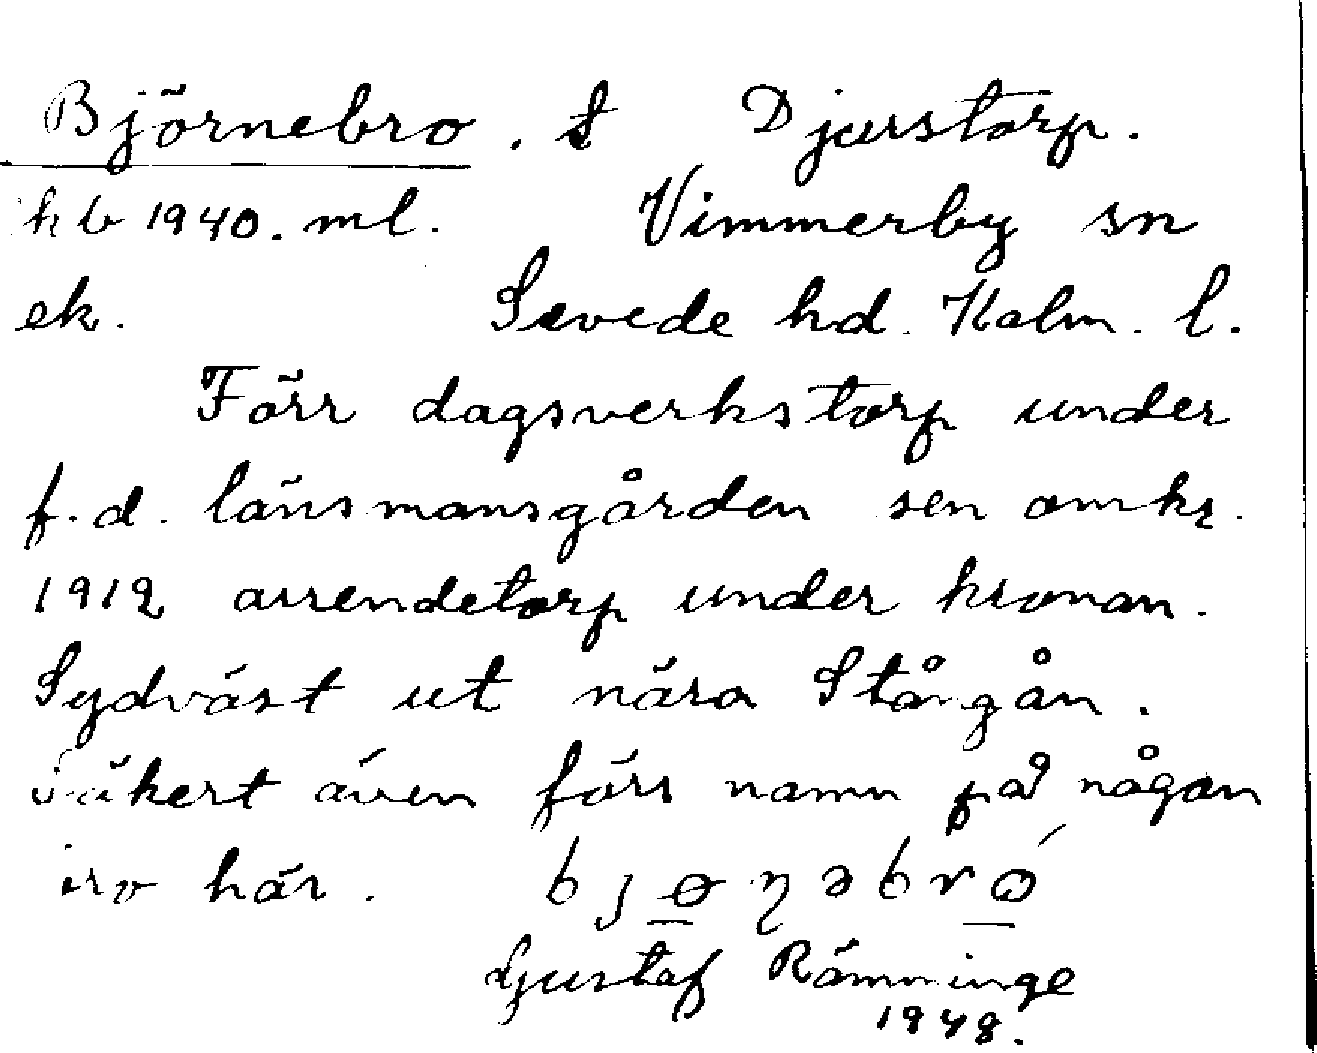 Björnebro. t Djurstorp.
hb 1940. ml. Vimmerby sn
ek. Sevede hd. Kalm. l.
Förr dagsverkstorp under
f.d. länsmansgården sen omkr.
1912 arrendetorp under kronan.
Sydväst ut nära Stångån.
Säkert även förr namn på någon
bro här. bjøɳəbró
Gustaf Rämninge
1948.